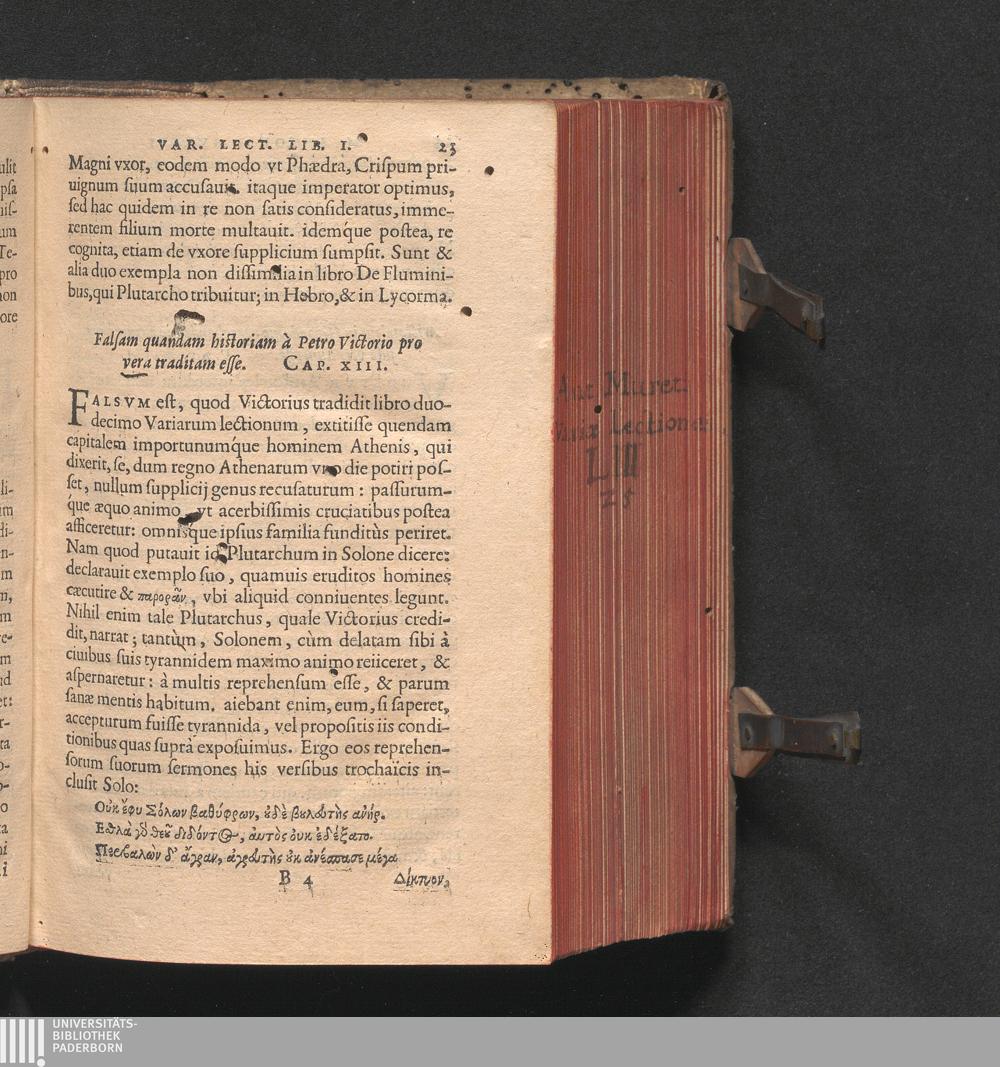 VAR. LECT. LIB. I. 23
Magni vxor, eodem modo vt Phædra, Crispum pri-
uignum suum accusauit. itaque imperator optimus,
sed hac quidem in re non satis consideratus, imme-
rentem filium morte multauit. idemq́ue postea, re
cognita, etiam de vxore supplicium sumpsit. Sunt &
alia duo exempla non dissimilia in libro De Flumini-
bus, qui Plutarcho tribuitur; in Hebro, & in Lycorma.
Falsam quandam historiam à Petro Victorio pro
vera traditam esse. CAP. XIII.
FALSVM est, quod Victorius tradidit libro duo-
decimo Variarum lectionum, extitisse quendam
capitalem importunumq́ue hominem Athenis, qui
dixerit, se, dum regno Athenarum vno die potiri pos-
set, nullum supplicij genus recusaturum: passurum-
q́ue æquo animo, vt acerbissimis cruciatibus postea
afficeretur: omnisque ipsius familia funditùs periret.
Nam quod putauit id Plutarchum in Solone dicere:
declarauit exemplo suo, quamuis eruditos homines
cæcutire & παρορᾶν, vbi aliquid conniuentes legunt.
Nihil enim tale Plutarchus, quale Victorius credi-
dit, narrat; tantùm, Solonem, cùm delatam sibi à
ciuibus suis tyrannidem maximo animo reiiceret, &
aspernaretur: à multis reprehensum esse, & parum
sanæ mentis habitum. aiebant enim, eum, si saperet,
accepturum fuisse tyrannida, vel propositis iis condi-
tionibus quas suprà exposuimus. Ergo eos reprehen-
sorum suorum sermones his versibus trochaïcis in-
clusit Solo:
Οὐκ ἔφυ Σόλων βαθύφρων, ἐδὲ βελδυτὴς ἀνήρ.
Ἐσθλὰ γὸ θεῦ διδόντος, ἀυτὸς ὀυκ ἐδέξατο.
Περιβαλὼν δ' ἄγραν, ἀγρδυτὴς ἐκ ἀνέσπασε μέγα
B 4 Δίκτυον,
Aut Muret.
Variæ Lectiones
LIII
25
UNIVERSITÄTS-
BIBLIOTHEK
PADERBORN